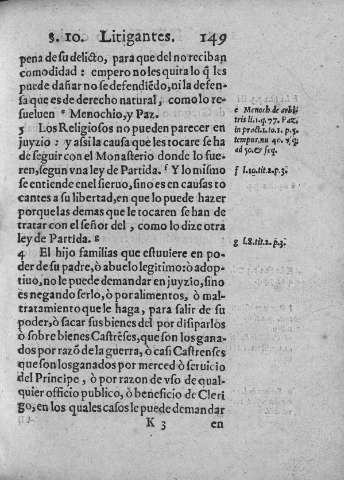 §. 10. Litigantes. 149
pena de su delicto, para que del no reciban
comodidad: empero no les quita lo q̃ les
puede dañar no se defendiẽdo, ni la defen-
sa que es de derecho natural, como lo re-
suelven e Menochio, y Paz.
3 Los Religiosos no pueden parecer en
juyzio: y assi la causa que les tocare se ha
de seguir con el Monasterio donde lo fue-
ren, segun vna ley de Partida. f Y lo mismo
se entiende en el sieruo, sino es en causas to
cantes a su libertad, en que lo puede hazer
porque las demas que le tocaren se han de
tratar con el señor del, como lo dize otra
ley de Partida. g
4 El hijo familias que estuuiere en po-
der de su padre, ò abuelo legitimo: ò adop-
tiuo, no le puede demandar en juyzio, sino
es negando serlo, ò por alimentos, ò mal-
tratamiento que le haga, para salir de su
poder, ò sacar sus bienes del por disiparlos
ò sobre bienes Castrẽses, que son los gana-
dos por razõ de la guerra, ò casi Castrenses
que son los ganados por merced ò seruicio
del Principe, ò por razon de vso de qual-
quier officio publico, ò beneficio de Cleri
go, en los quales casos le puede demandar
K 3 en
e Menoch de arbi
tris li. 1. q. 77. Paz,
in pract. 1. 10. 1. p. 3.
tempor. nu 40. v. q;
ad 50. & seq.
f l. 10. tit. 2. p. 3.
g l. 8. tit. 2. p. 3.